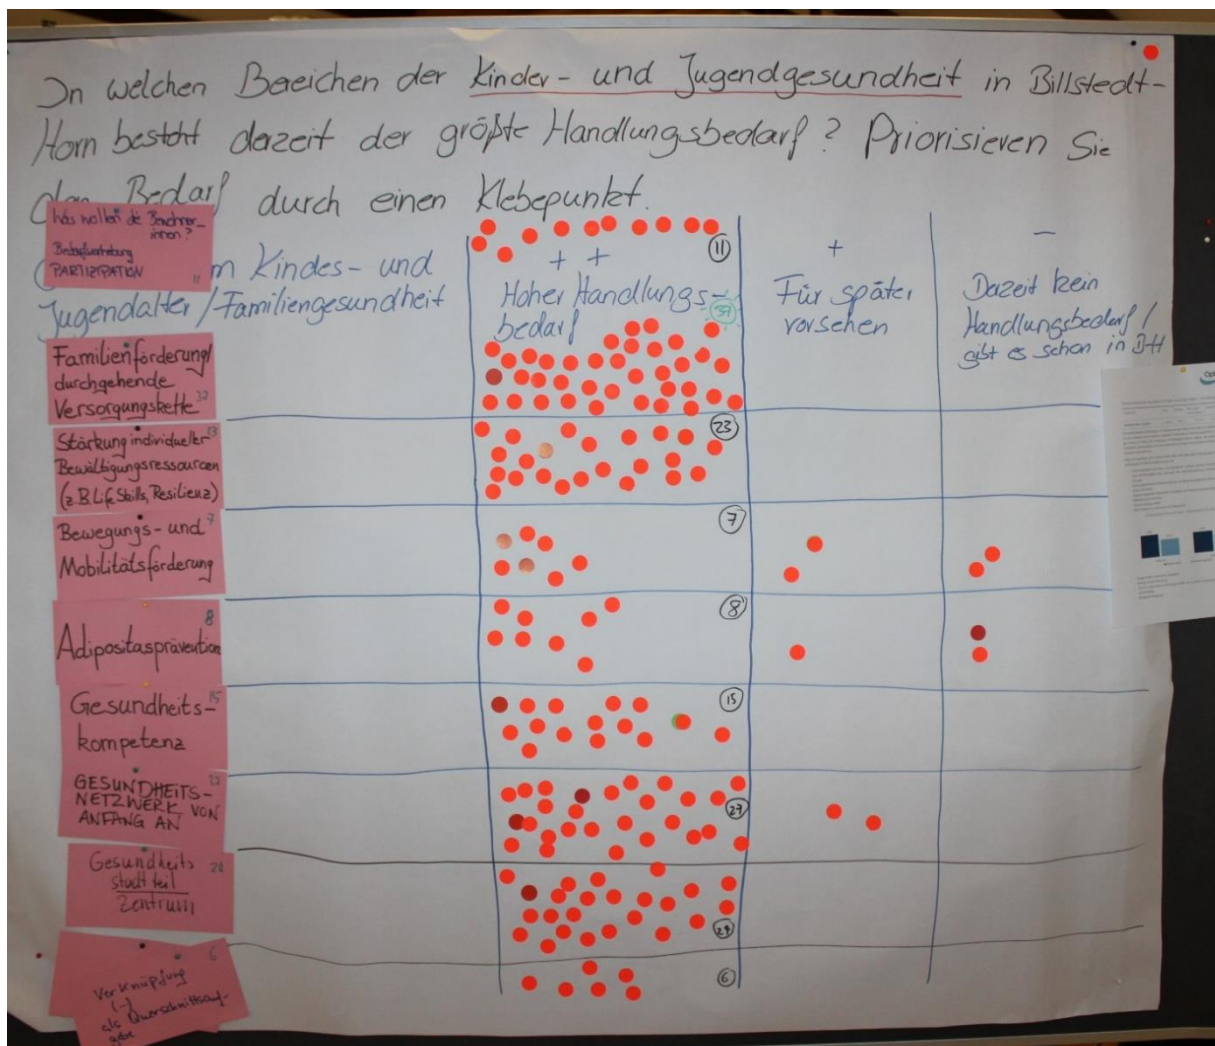 In welchen Bereichen der Kinder- und Jugendgesundheit in Billstedt-
Horn besteht derzeit der größte Handlungsbedarf? Priorisieren Sie
den Bedarf durch einen Klebepunkt.
Was wollen die Bewohner-
innen?
Bedarfserhebung
PARTIZIPATION
11
m Kindes- und
Jugendalter/Familiengesundheit
11
+ +
Hoher Handlungs-
bedarf
37
+
Für später
vorsehen
-
Derzeit kein
Handlungsbedarf/
gibt es schon in B-H
Familienförderung/
durchgehende
Versorgungskette
Stärkung individueller
Bewältigungsressourcen
(z.B. Life Skills, Resilienz)
23
Bewegungs- und 7
Mobilitätsförderung
7
8
Adipositasprävention
8
Gesundheits- 15
kompetenz
15
GESUNDHEITS-
NETZWERK VON
ANFANG AN
27
Gesundheits
stadtteil
Zentrum
6
Verknüpfung
(-)
als Querschnittsauf-
gabe
6